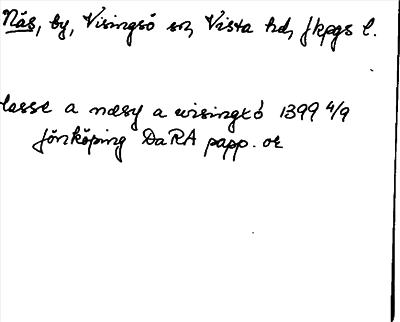 Näs, by, Visingsö sn, Vista hd, Jkpgs l.
lasse a næsy a wisingxö 1399 4/9
Jönköping DaRA papp. or